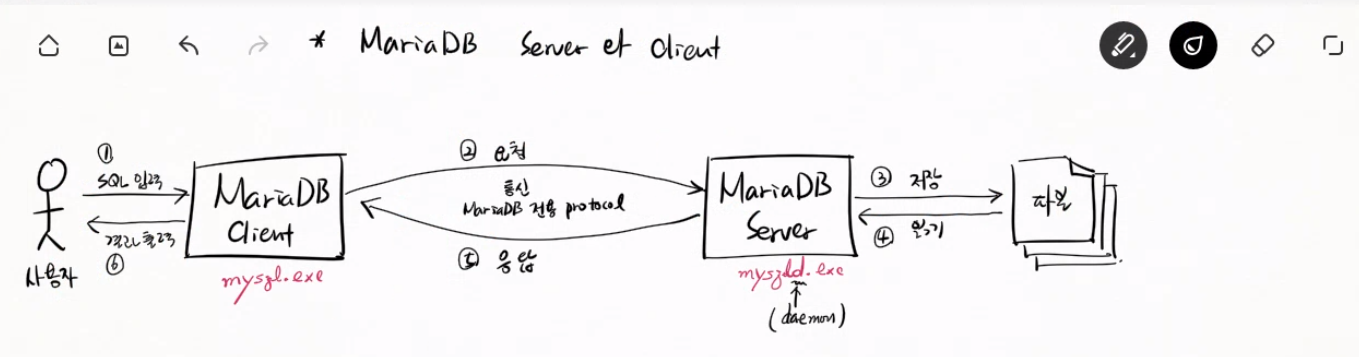 * MariaDB Server et Client
①
SQL 입력
결과 출력
⑥
사용자
MariaDB
Client
mysql.exe
② 요청
통신
MariaDB 전용 protocol
⑤ 응답
MariaDB
Server
mysqld.exe
↑
(daemon)
③ 저장
④ 읽기
파일